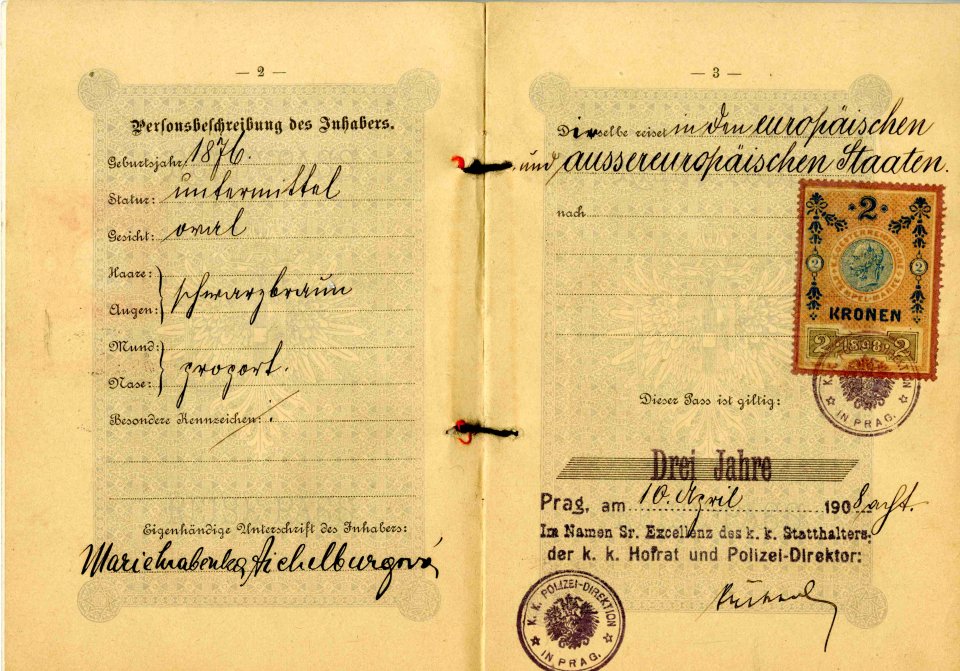 — 2 —
Personsbeschreibung des Inhabers.
Geburtsjahr 1876.
Statur: untermittel
Gesicht: oval
Haare:
Augen: schwarzbraun
Mund:
Nase: proport.
Besondere Kennzeichen:
Eigenhändige Unterschrift des Inhabers:
Aichelburgová
— 3 —
Dieselbe reiset in den europäischen
und aussereuropäischen Staaten.
nach
2
2 2
KRONEN
2 1898 2
K. K. POLIZEI-DIREKTION
IN PRAG.
Dieser Pass ist giltig:
Drei Jahre
Prag, am 10. April 1908 acht.
Im Namen Sr. Excellenz des k. k. Statthalters:
der k. k. Hofrat und Polizei-Direktor:
K. K. POLIZEI-DIREKTION
IN PRAG.